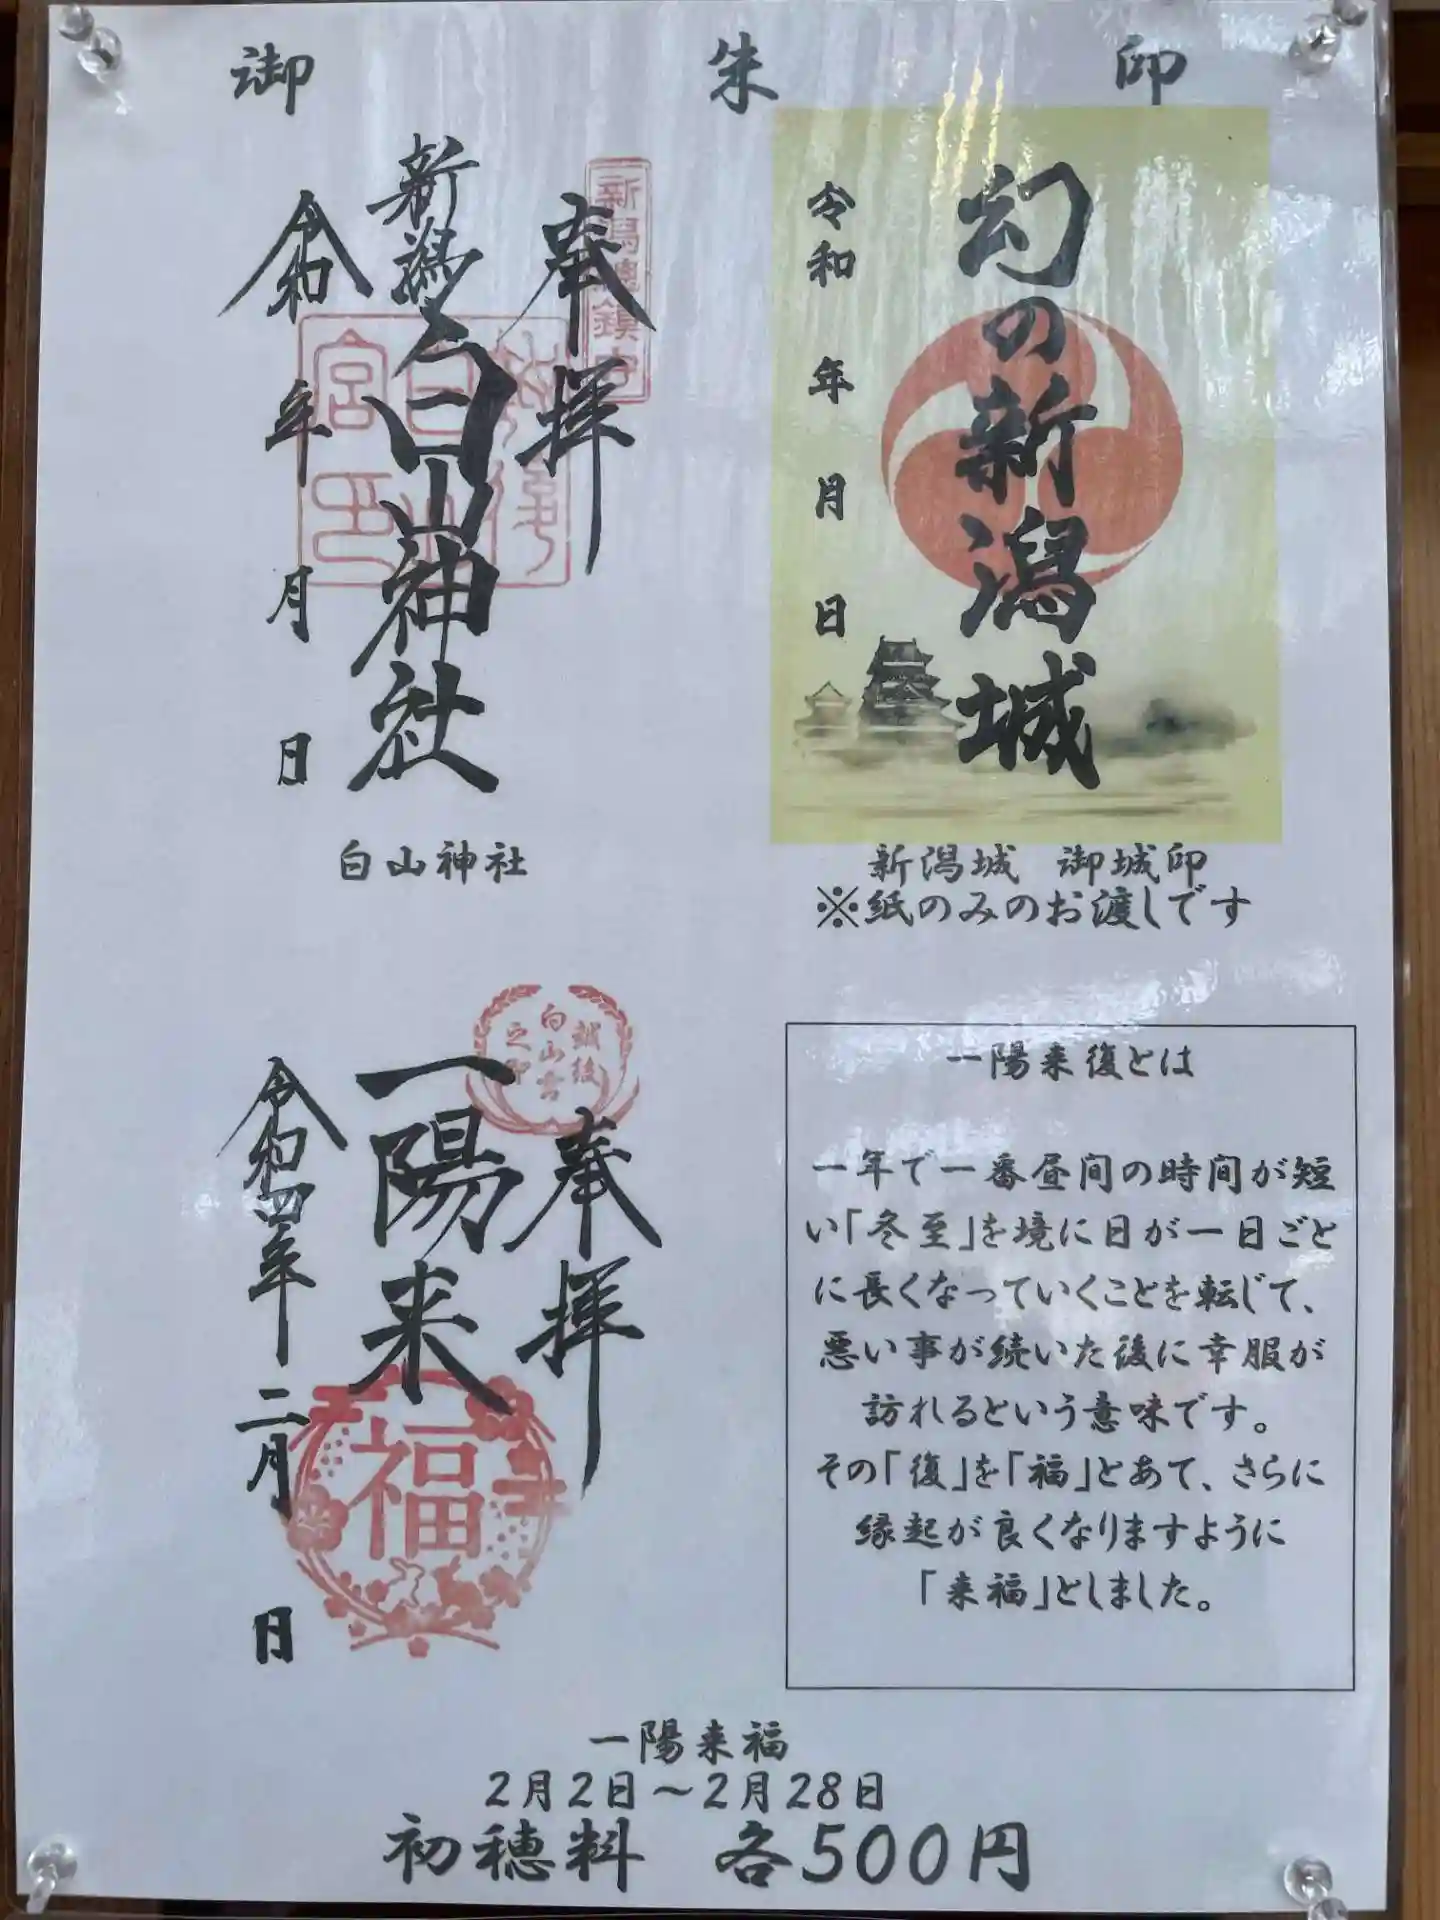 御 朱 印
奉拝
新潟総鎮守
新潟
白山神社
令和 年 月 日
白山神社
幻の新潟城
令和 年 月 日
新潟城 御城印
※紙のみのお渡しです
奉拝
越後
白山宮
之印
一陽来
福
令和四年二月 日
一陽来復とは
一年で一番昼間の時間が短
い「冬至」を境に日が一日ごと
に長くなっていくことを転じて、
悪い事が続いた後に幸服が
訪れるという意味です。
その「復」を「福」とあて、さらに
縁起が良くなりますように
「来福」としました。
一陽来福
2月2日～2月28日
初穂料 各500円